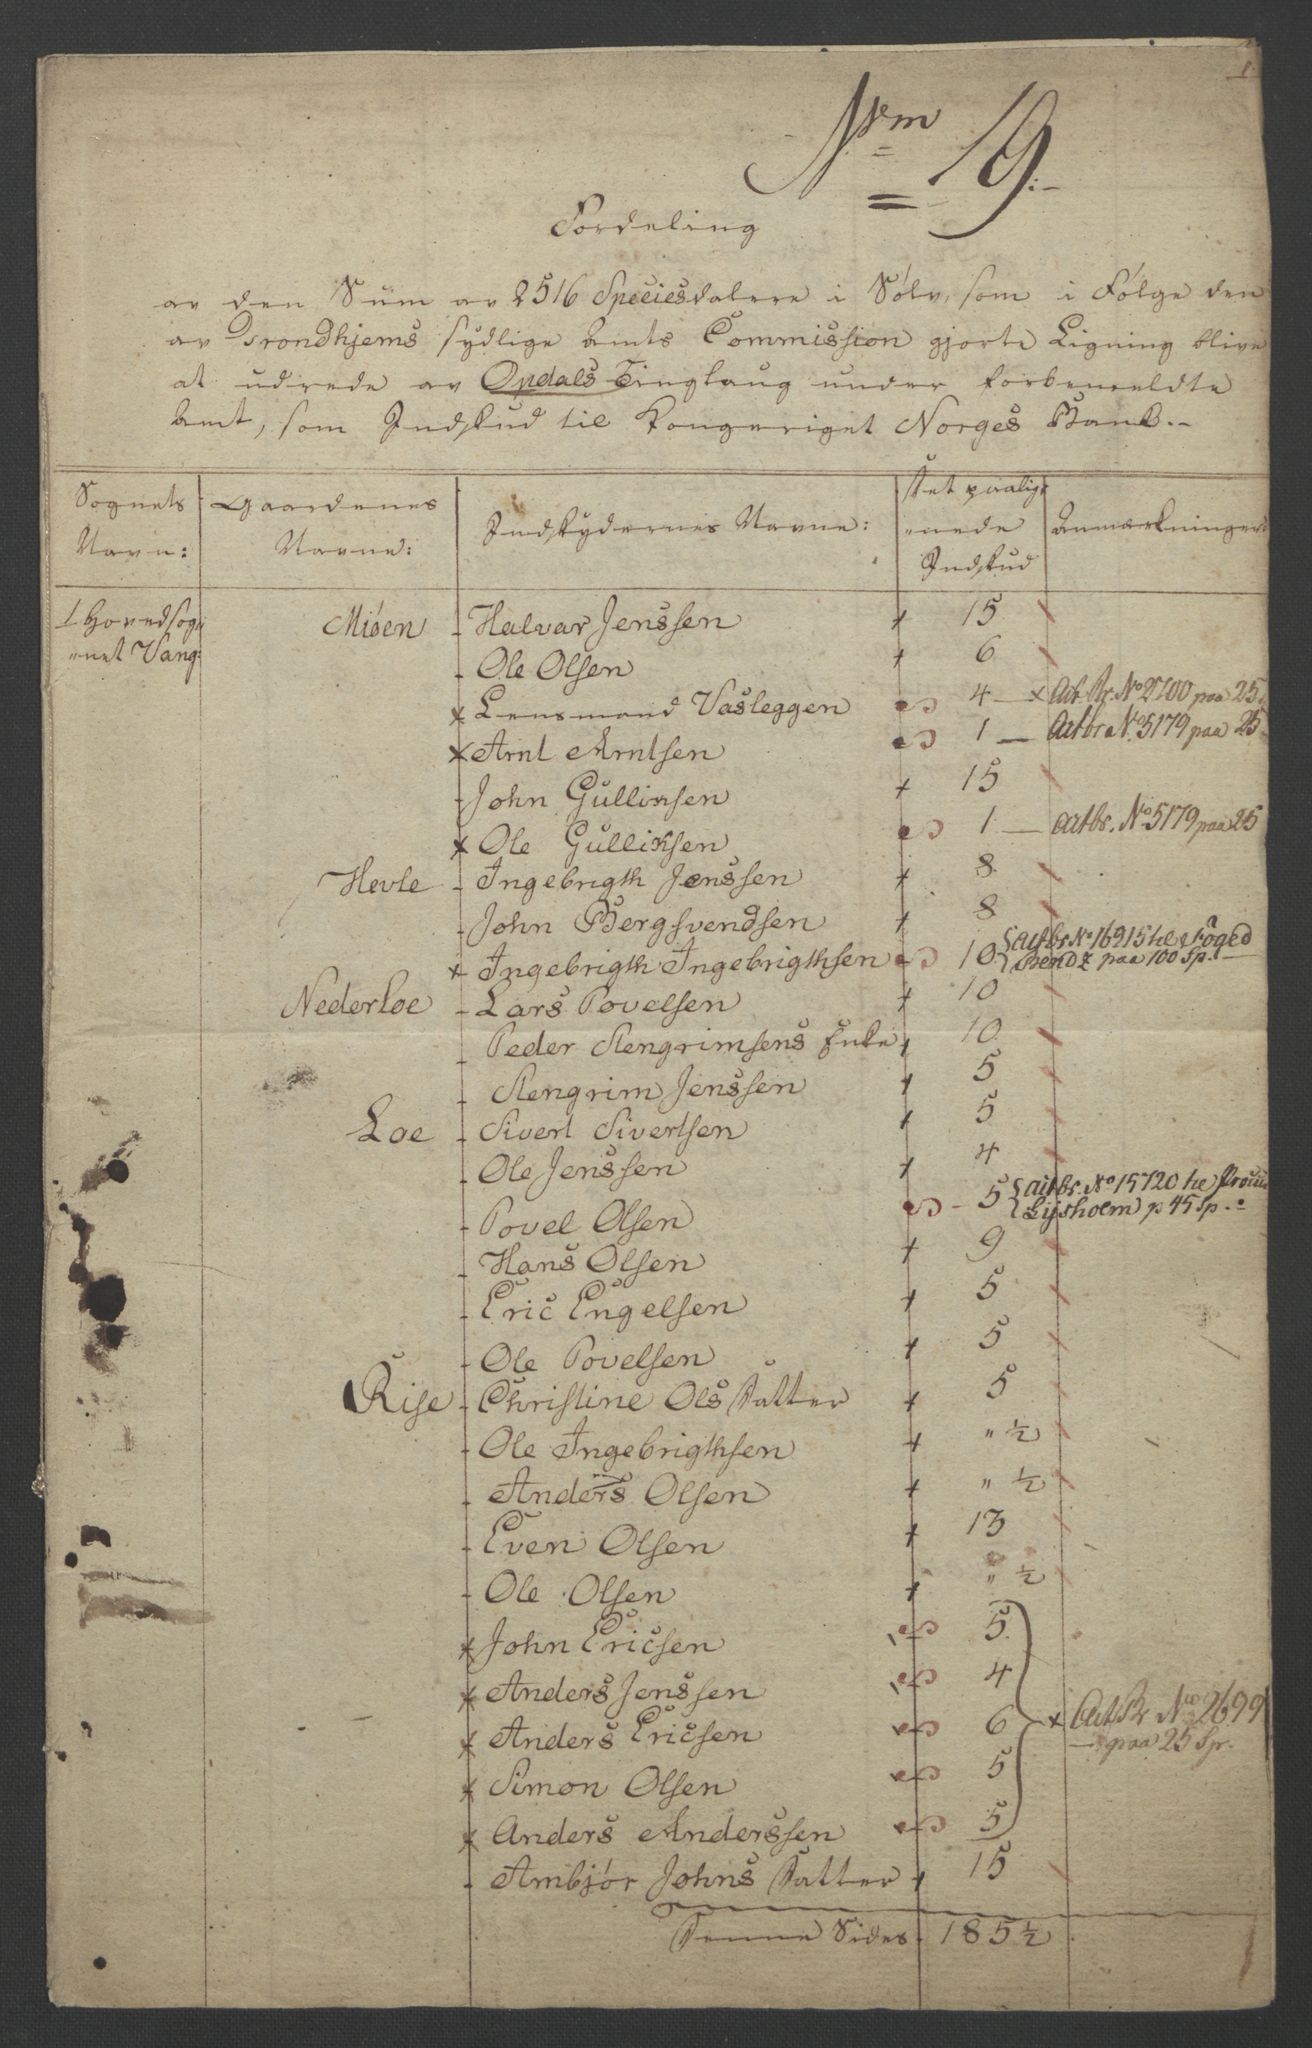 1.
Nrm 19:
Fordeling
av den Sum av 2516 Speciesdalere i Sølv, som i Følge den
av Trondhjems sydlige Amts Commission gjorte Ligning blive
at udrede av Opdals Tinglaug under forbemeldte
Amt, som Indskud til Kongeriget Norges Bank.
Sognets Navn: Gaardenes Navne: Indskydernes Navne: Det paalignede Indskud Anmærkninger:
1 Hovedsognet Vang: Miøen - Halvar Jenssen + 15
- Ole Olsen + 6
x Lensmand Vasleggen 4 — x Act Br. No 2700 paa 25
x Arnt Arntsen 1 — Actbr No 5179 paa 25
- John Gullixsen + 15
x Ole Gullixsen 1 — actbr. No 5179 paa 25
Hevle - Ingebrigth Jenssen + 8
- John Bergsvendsen + 8
x Ingebrigth Ingebrigthsen 10 { actbr No 16915 til Foged
Bendz paa 100 Sp.
Nederloe - Lars Povelsen + 10
- Peder Stengrimsens Enke + 10
- Stengrim Jenssen + 5
Loe - Sivert Sivertsen + 5
- Ole Jenssen + 4
- Povel Olsen 5 { actbr. No 15720 til
Lysholm p 45 Sp.
- Hans Olsen + 9
- Eric Engelsen + 5
- Ole Povelsen + 5
Rise - Christine Ols Datter + 5
- Ole Ingebrigthsen + " ½
- Anders Olsen + " ½
- Even Olsen + 13
- Ole Olsen + " ½
x John Ericsen 5
x Anders Jenssen 4
x Anders Ericsen 6 x Act Br No 2699
paa 25 Sp.
x Simon Olsen 5
x Anders Anderssen 5
- Ambjør Johns Datter + 15
Denne Sides 185 ½